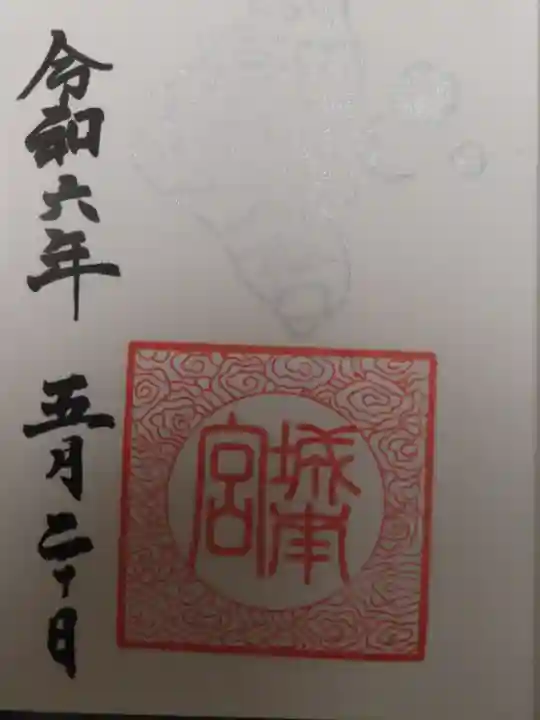 城南
宮
令和六年 五月二十日